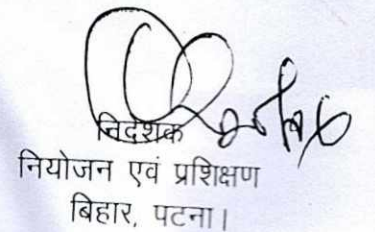 निदेशक
नियोजन एवं प्रशिक्षण
बिहार, पटना।